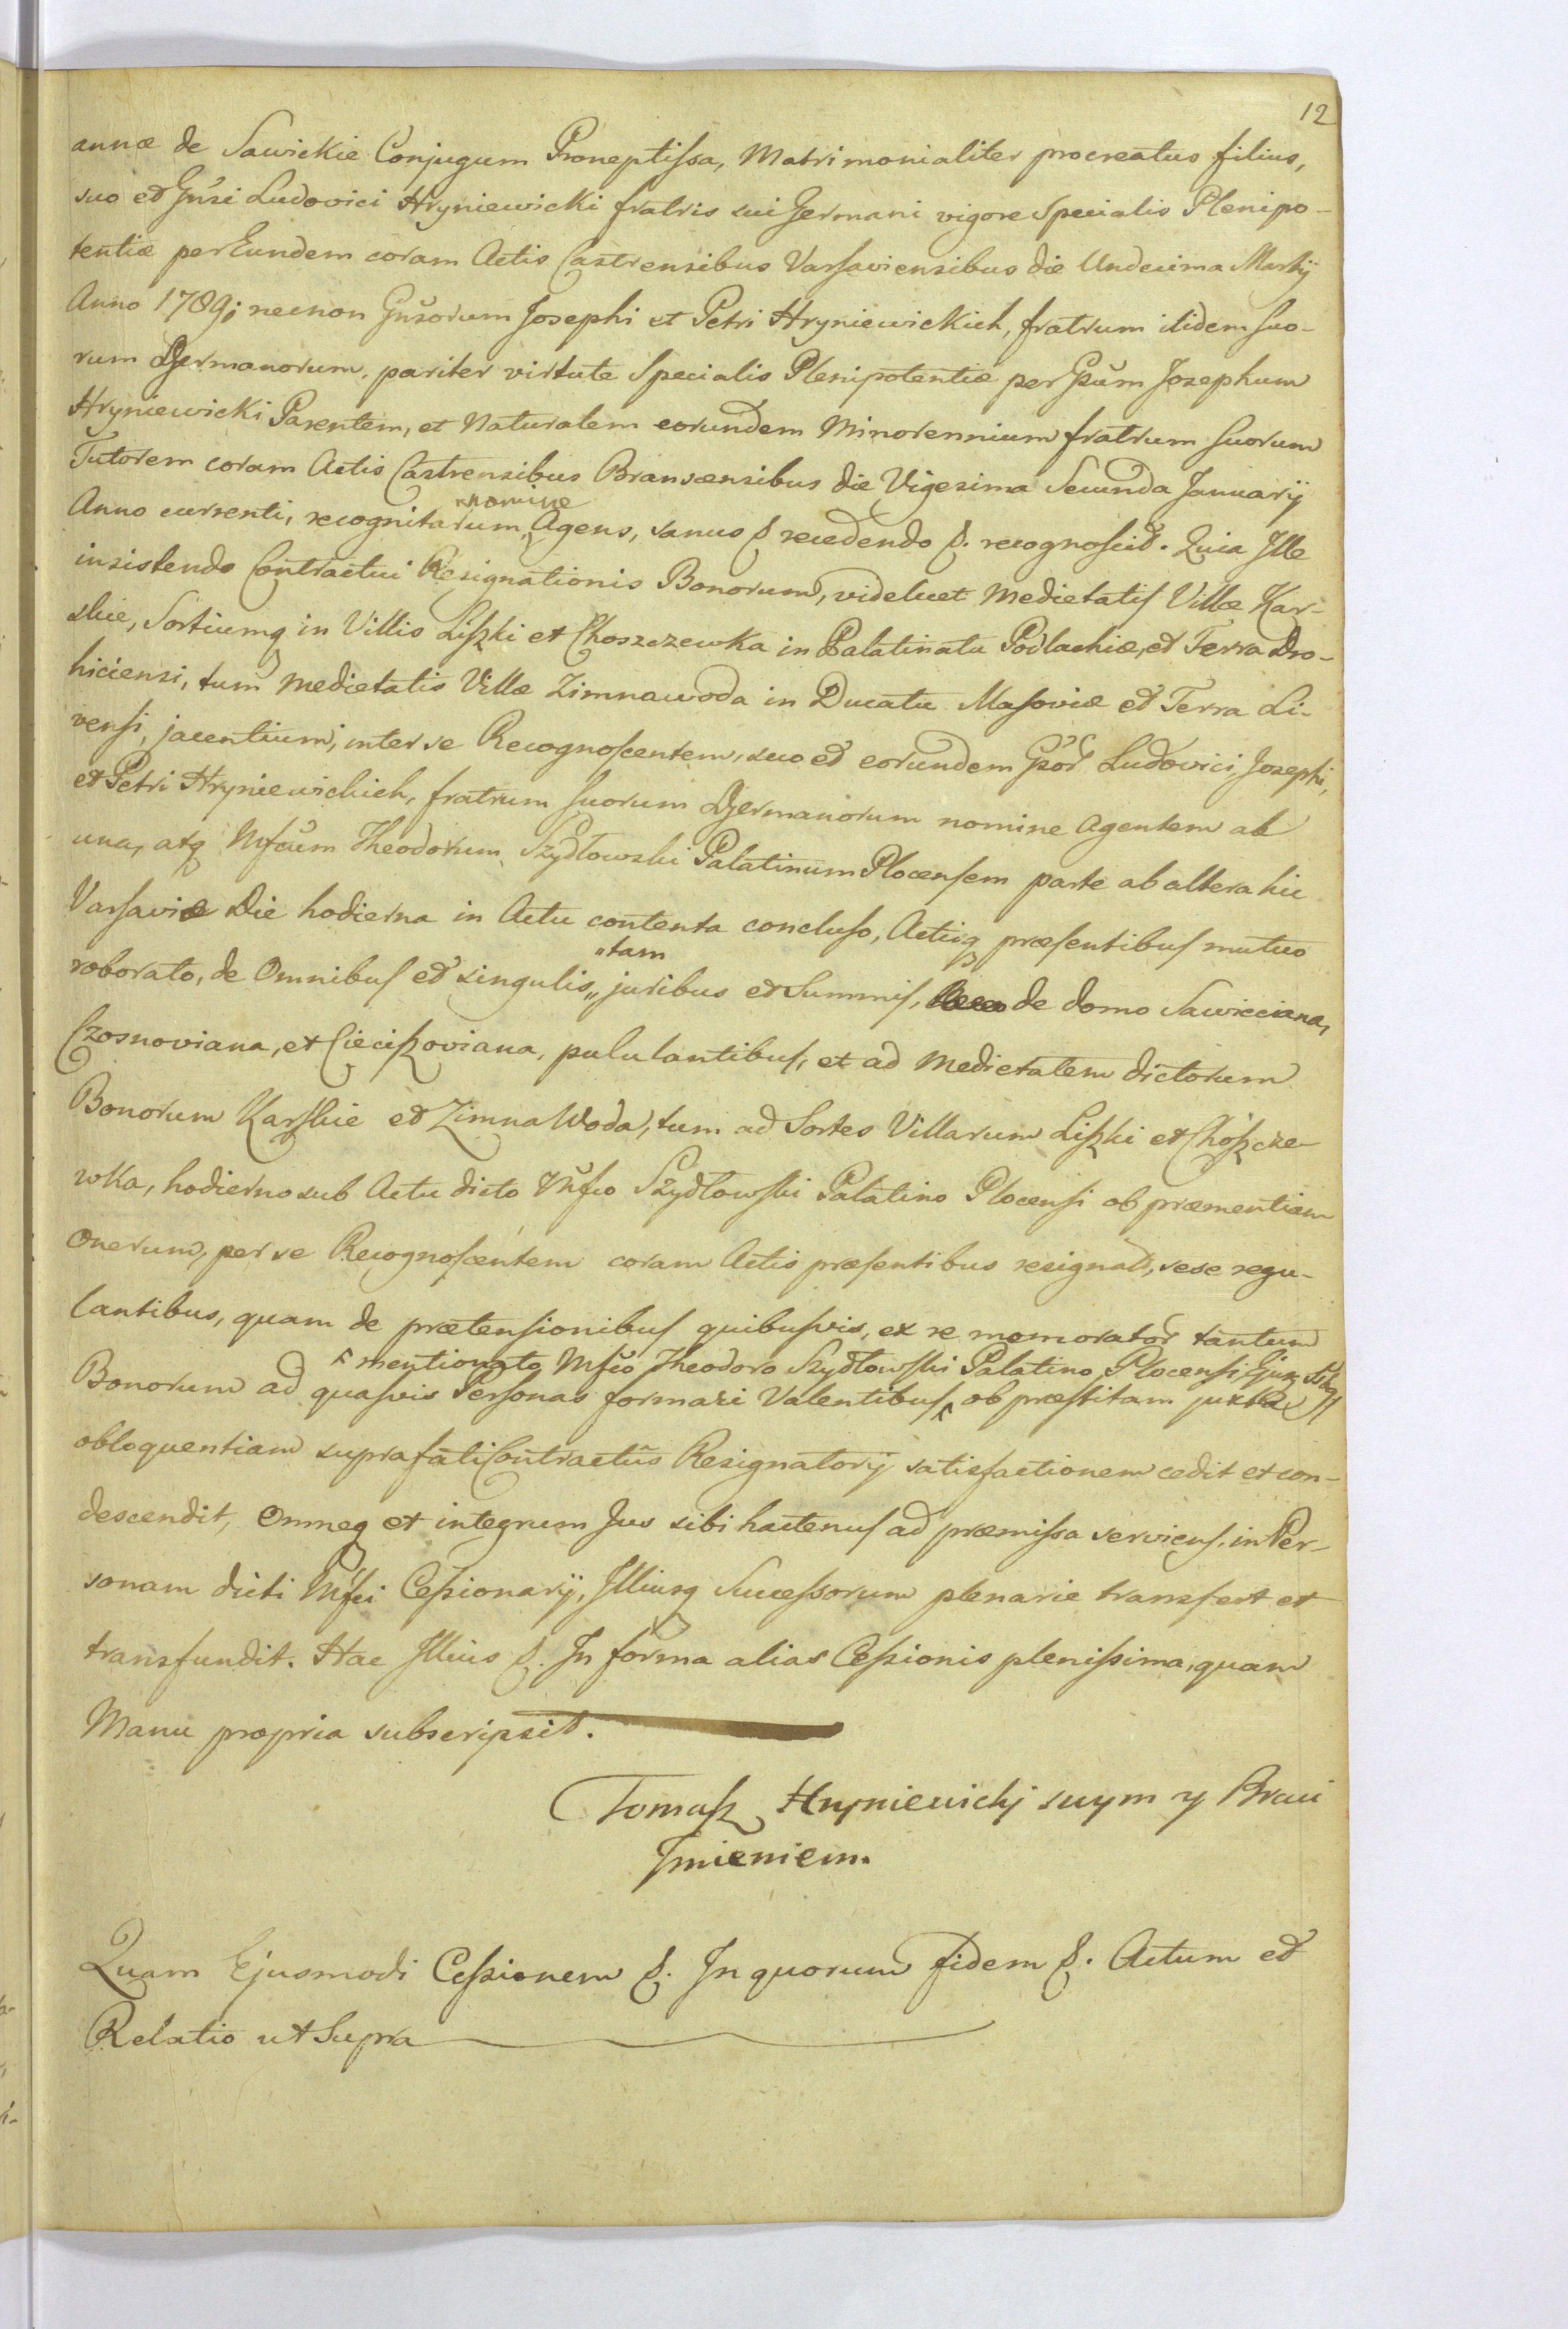 12
annæ de Sawickie Conjugum Proneptissa, Matrimonialiter procreatus filius,
suo et Gnsi Ludovici Hryniewicki fratris sui Germani vigore Specialis Plenipo-
tentiæ per Eundem coram Actis Castrensibus Varsaviensibus die Undecima Martij
Anno 1789; necnon Gnsorum Josephi et Petri Hryniewickich, fratrum itidem suo-
rum Germanorum, pariter virtute Specialis Plenipotentiæ per Gsum Josephum
Hryniewicki Parentem, et Naturalem eorundem Minorennium fratrum suorum
Tutorem coram Actis Castrensibus Branscensibus die Vigesima Secunda Januarij
nomine
Anno currenti, recognitarum, Agens, sanus p recedendo p. recognoscit. Quia Ille
insistendo Contractui Resignationis Bonorum, videlicet Medietatis Villæ Kar-
skie, Sortiumq in Villis Liszki et Choszczewka in Palatinatu Podlachiæ, et Terra Dro-
hiciensi, tum Medietatis Villæ Zimnawoda in Ducatu Masoviæ et Terra Li-
vensi, jacentium, inter se Recognoscentem, suo et eorundem Gsor Ludovici, Josephi,
et Petri Hryniewickich, fratrum suorum Germanorum nomine Agentem ab
una, atq Mfcum Theodorum Szydłowski Palatinum Plocensem parte ab altera hic
Varsaviæ Die hodierna in Actu contenta concluso, Actisq præsentibus mutuo
tam
roborato, de Omnibus et singulis, juribus et Summis, de domo Sawicciana,
Czosnoviana, et Cieciszoviana, pululantibus, et ad Medietatem dictorum
Bonorum Karskie et Zimna Woda, tum ad Sortes Villarum Liszki et Choszcze-
wka, hodierno sub Actu dicto Mfco Szydłowski Palatino Plocensi ob præmentiam
Onerum, per se Recognoscentem coram Actis præsentibus resignat, sese regu-
lantibus, quam de prætensionibus quibusvis, ex re memorator tantum
mentionato Mfco Theodoro Szydłowski Palatino Plocensi, Ejusq
Bonorum ad quasvis Personas formari Valentibus, ob præstitam juxta
obloquentiam suprafati Contractus Resignatorij satisfactionem cedit et con-
descendit, Omneq et integrum Jus sibi hactenus ad præmissa serviens, in Per-
sonam dicti Mfci Cessionarij, Illiusq Successorum plenarie transfert et
transfundit. Hac Illius p. In forma alias Cessionis plenissima, quam
Manu propria subscripsit.
Tomasz Hryniewicki swym y Braci
Jmieniem.
Quam Ejusmodi Cessionem p. In quorum fidem p. Actum et
Relatio ut Supra